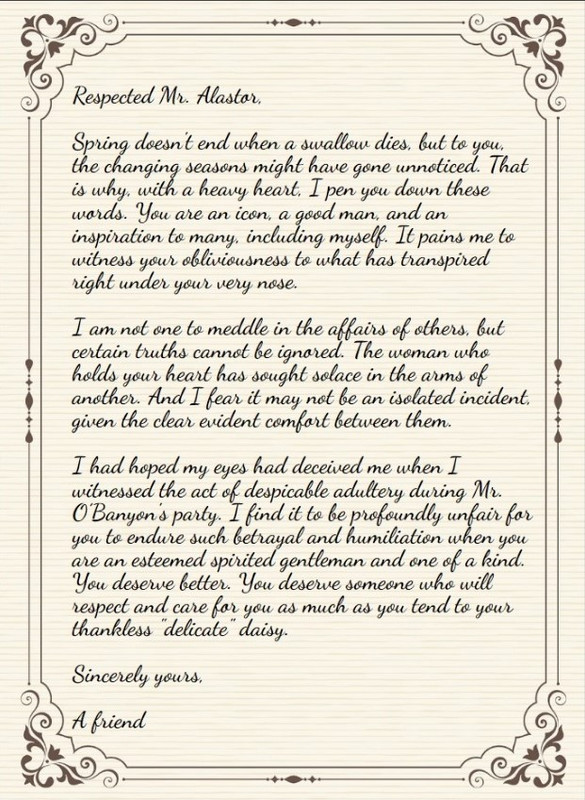 Respected Mr. Alastor,
Spring doesn't end when a swallow dies, but to you,
the changing seasons might have gone unnoticed. That
is why, with a heavy heart, I pen you down these
words. You are an icon, a good man, and an
inspiration to many, including myself. It pains me to
witness your obliviousness to what has transpired
right under your very nose.
I am not one to meddle in the affairs of others, but
certain truths cannot be ignored. The woman who
holds your heart has sought solace in the arms of
another. And I fear it may not be an isolated incident,
given the clear evident comfort between them.
I had hoped my eyes had deceived me when I
witnessed the act of despicable adultery during Mr.
O'Banyon's party. I find it to be profoundly unfair for
you to endure such betrayal and humiliation when you
are an esteemed spirited gentleman and one of a kind.
You deserve better. You deserve someone who will
respect and care for you as much as you tend to your
thankless "delicate" daisy.
Sincerely yours,
A friend